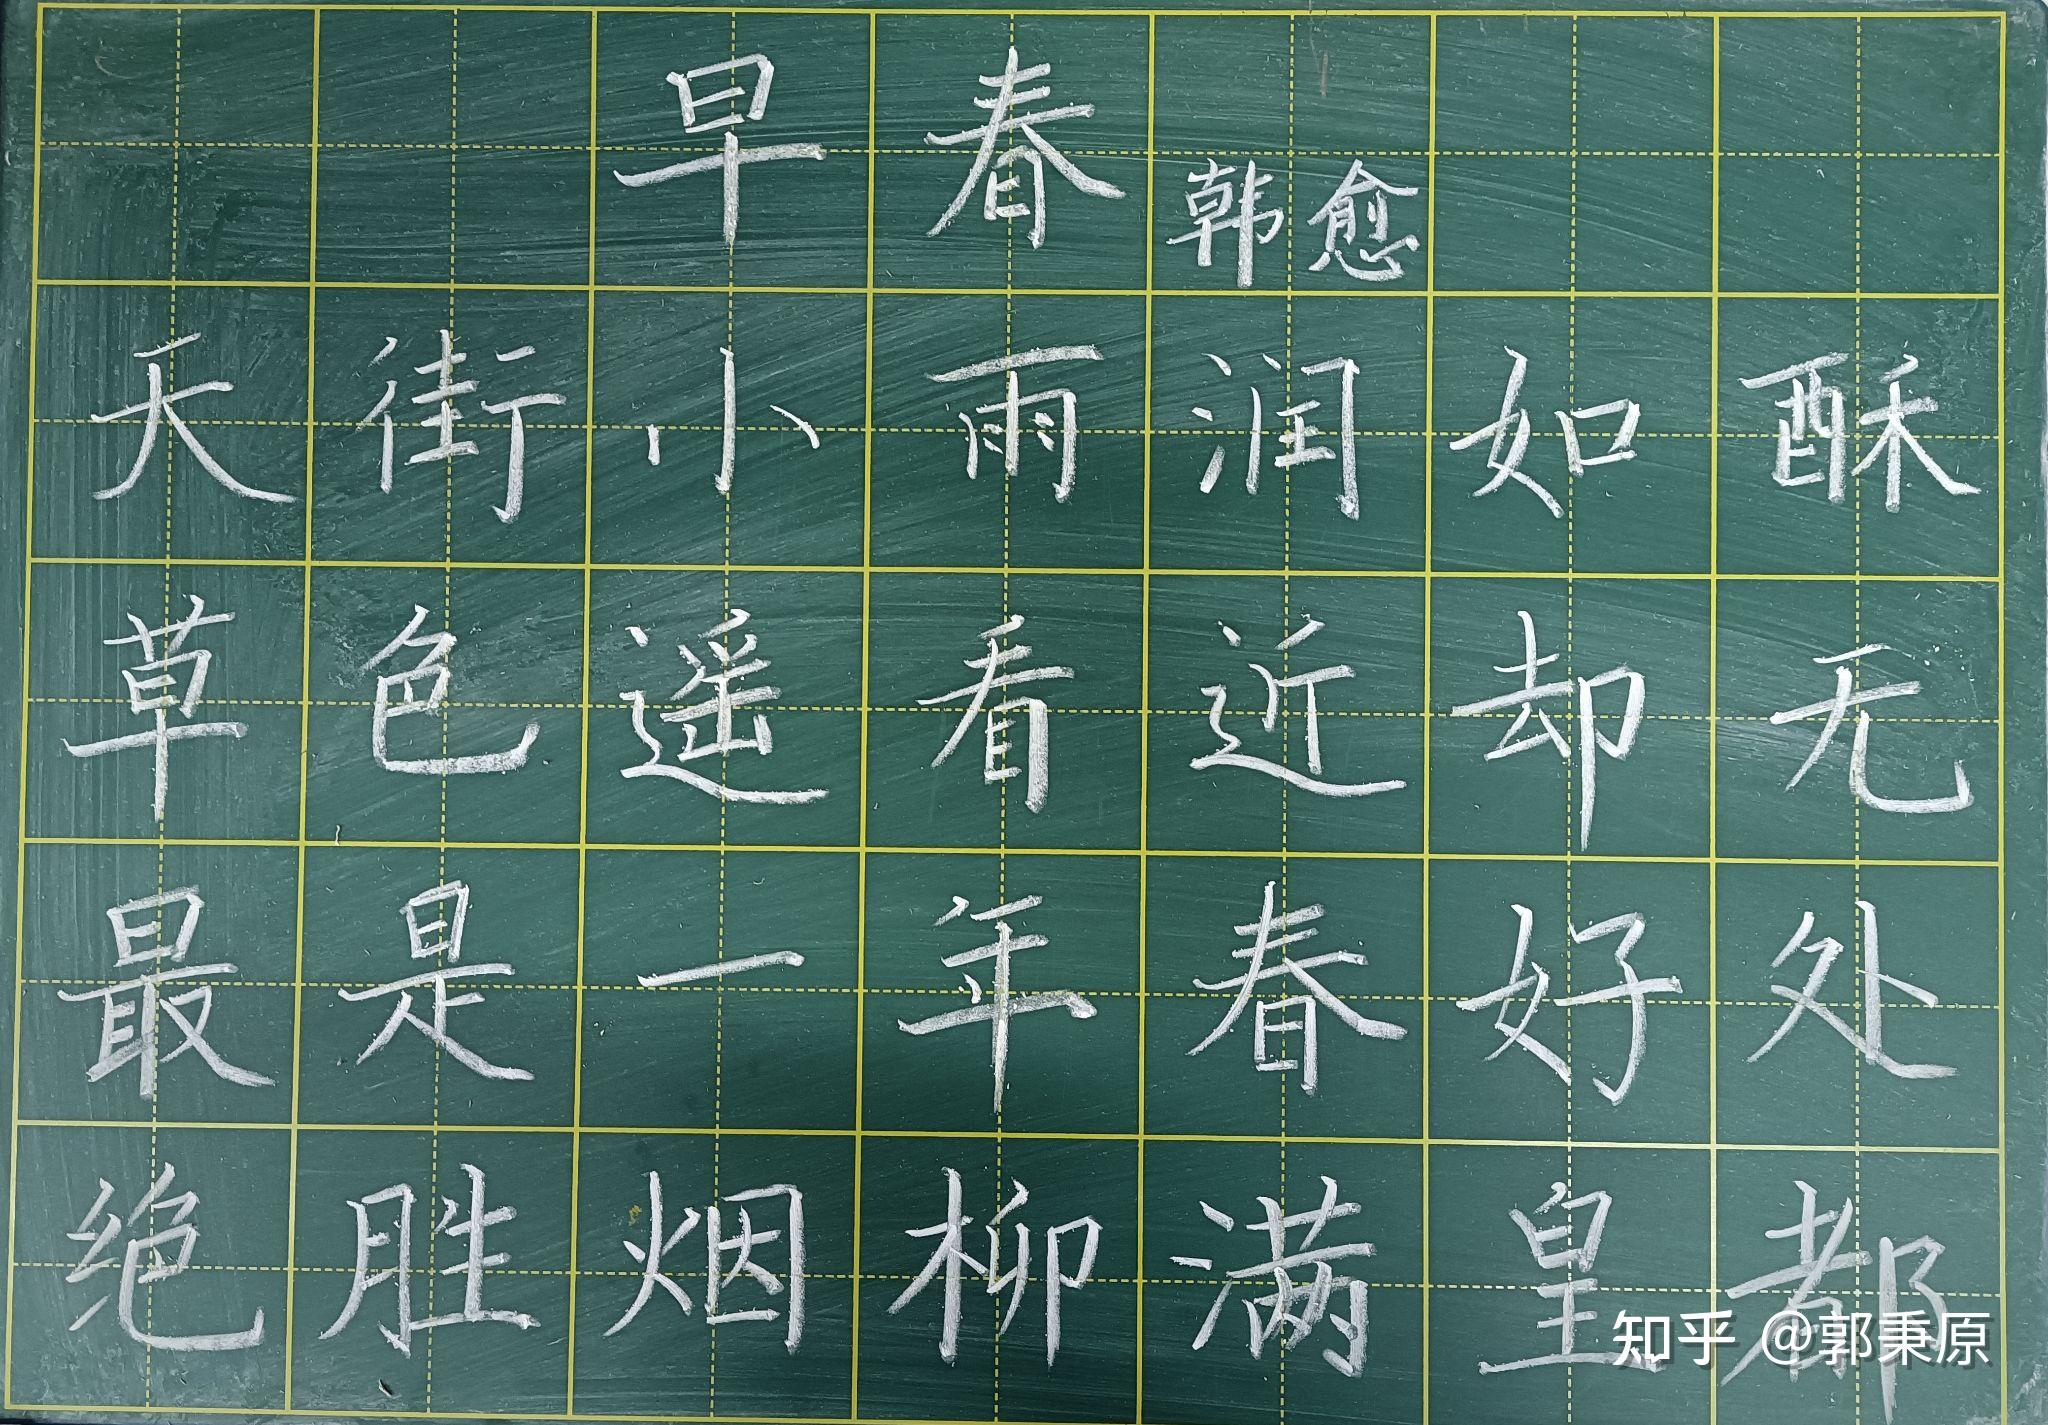 早春 韩愈
天街小雨润如酥
草色遥看近却无
最是一年春好处
绝胜烟柳满皇都
知乎 @郭秉原